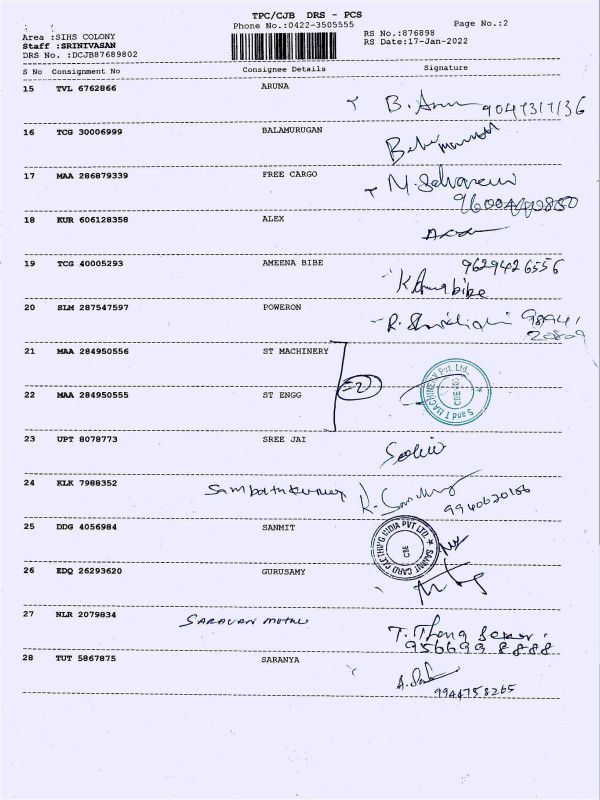 TPC/CJB DRS - PCS
Phone No.:0422-3505555
Page No.:2
Area :SIHS COLONY
RS No.:876898
Staff :SRINIVASAN
RS Date:17-Jan-2022
DRS No. :DCJB87689802
S No Consignment No Consignee Details Signature
15 TVL 6762866 ARUNA
B. Arun 9047317136
16 TCG 30006999 BALAMURUGAN
17 MAA 286879339 FREE CARGO
18 KUR 606128358 ALEX
19 TCG 40005293 AMEENA BIBE
9629426556
20 SLM 287547597 POWERON
21 MAA 284950556 ST MACHINERY
22 MAA 284950555 ST ENGG
S and T MACHINERY Pvt. Ltd.,
23 UPT 8078773 SREE JAI
24 KLK 7988352 Sampathkumar
9940620186
25 DDG 4056984 SANMIT
SANMIT CARD CLOTHING INDIA PVT LTD.
CBE
26 EDQ 26293620 GURUSAMY
27 NLR 2079834 SARAVAN MUTHU
956699 8888
28 TUT 5867875 SARANYA
9944758265